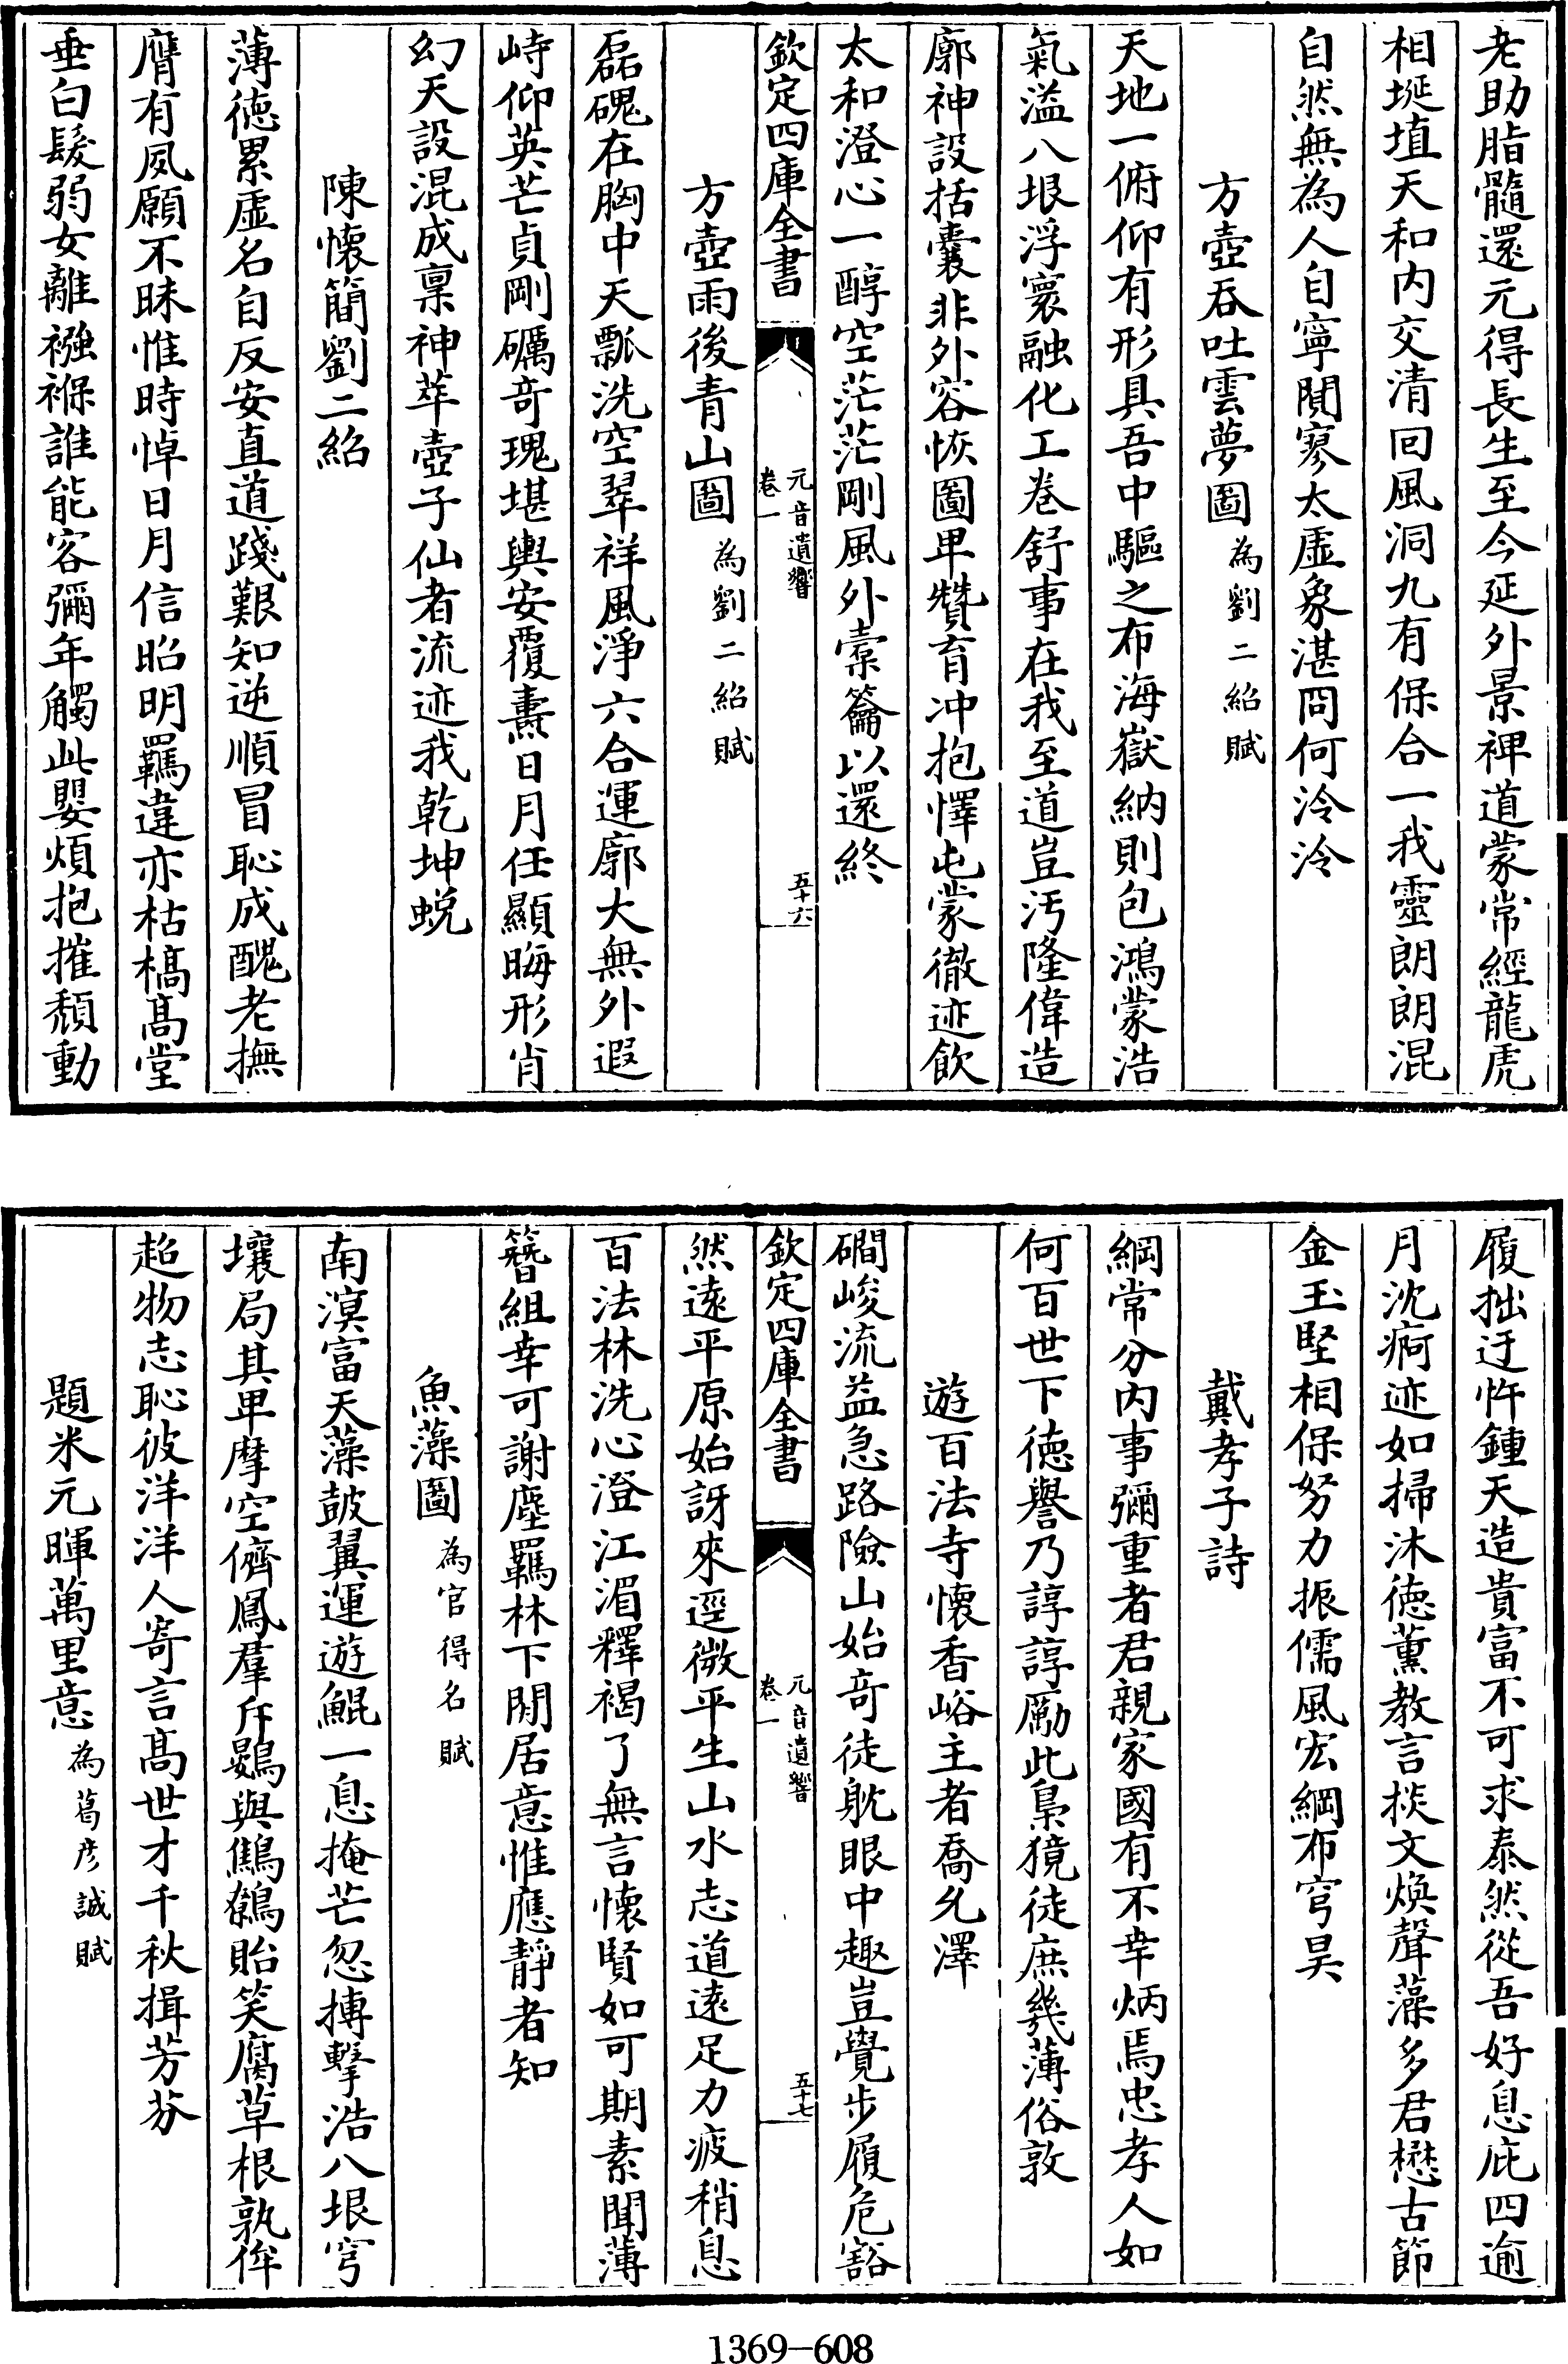 老助脂髓還元得長生至今延外景裨道蒙常經龍虎
相埏埴天和内交清回風洞九有保合一我靈朗朗混
自然無為人自寧閴寥太虛象湛冏何泠泠
方壺吞吐雲夢圖為劉二紹賦
天地一俯仰有形具吾中驅之布海嶽納則包鴻蒙浩
氣溢八垠浮寰融化工卷舒事在我至道豈汚隆偉造
廓神設括囊非外容恢圖畀贊育冲抱懌屯蒙徹迹飲
太和澄心一醇空茫茫剛風外橐籥以還終
欽定四庫全書
元音遺響
卷一
五十六
方壺雨後青山圖為劉二紹賦
磊磈在胸中天瓢洗空翠祥風淨六合運廓大無外遐
峙仰英芒貞剛礪奇瑰堪輿安覆燾日月任顯晦形肖
幻天設混成稟神萃壺子仙者流迹我乾坤蛻
陳懷簡劉二紹
薄德累虛名自反安直道踐艱知逆順冒恥成醜老撫
膺有夙願不昧惟時悼日月信昭明羈違亦枯槁髙堂
垂白髮弱女離襁褓誰能客彌年觸此嬰煩抱摧頽動
履拙迂忤鍾天造貴富不可求泰然從吾好息庇四逾
月沈痾迹如掃沐德薰教言掞文煥聲藻多君懋古節
金玉堅相保努力振儒風宏綱布穹昊
戴孝子詩
綱常分内事彌重者君親家國有不幸炳焉忠孝人如
何百世下德譽乃諄諄勵此梟獍徒庶幾薄俗敦
遊百法寺懷香峪主者喬允澤
磵峻流益急路險山始奇徒躭眼中趣豈覺步履危豁
欽定四庫全書
元音遺響
卷一
五十七
然遠平原始訝來逕微平生山水志道遠足力疲稍息
百法林洗心澄江湄釋褐了無言懷賢如可期素聞薄
簪組幸可謝塵羈林下閒居意惟應靜者知
魚藻圖為官得名賦
南溟富天藻皷翼運遊鯤一息掩芒忽搏擊浩八垠穹
壤局其卑摩空儕鳳羣斥鷃與鷦鷯貽笑腐草根孰侔
超物志恥彼洋洋人寄言髙世才千秋揖芳芬
題米元暉萬里意為葛彦誠賦
1369-608